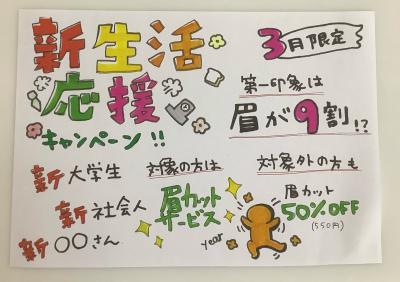 新生活
応援
キャンペーン!!
3月限定
第一印象は
眉が9割!?
新大学生
新社会人
新○○さん
対象の方は
眉カット
サービス
対象外の方も
眉カット
50%OFF
(550円)
year